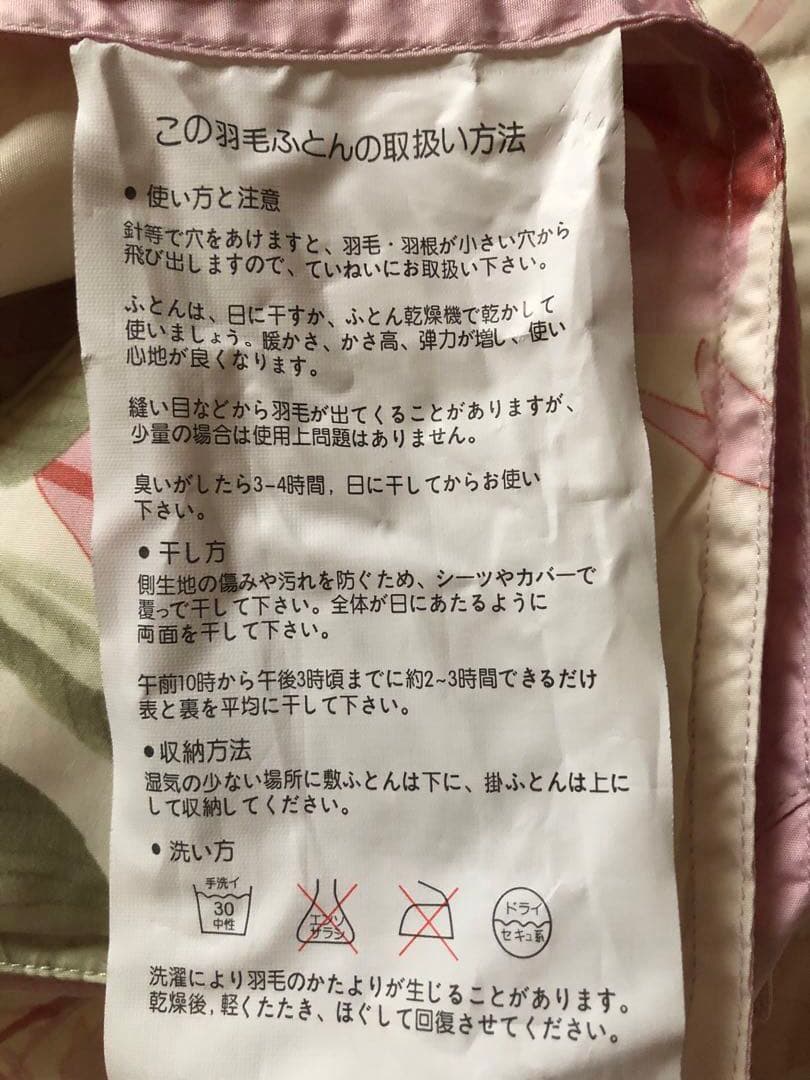 この羽毛ふとんの取扱い方法
● 使い方と注意
針等で穴をあけますと、羽毛・羽根が小さい穴から
飛び出しますので、ていねいにお取扱い下さい。
ふとんは、日に干すか、ふとん乾燥機で乾かして
使いましょう。暖かさ、かさ高、弾力が増し、使い
心地が良くなります。
縫い目などから羽毛が出てくることがありますが、
少量の場合は使用上問題はありません。
臭いがしたら3-4時間, 日に干してからお使い
下さい。
● 干し方
側生地の傷みや汚れを防ぐため、シーツやカバーで
覆っで干して下さい。全体が日にあたるように
両面を干して下さい。
午前10時から午後3時頃までに約2~3時間できるだけ
表と裏を平均に干して下さい。
●収納方法
湿気の少ない場所に敷ふとんは下に、掛ふとんは上に
して収納してください。
● 洗い方
手洗イ
30
中性
エンソ
サラシ
ドライ
セキュ系
洗濯により羽毛のかたよりが生じることがあります。
乾燥後, 軽くたたき、ほぐして回復させてください。